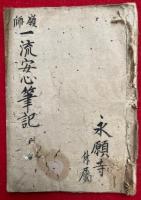 嶺師
一流安心筆記
永願寺